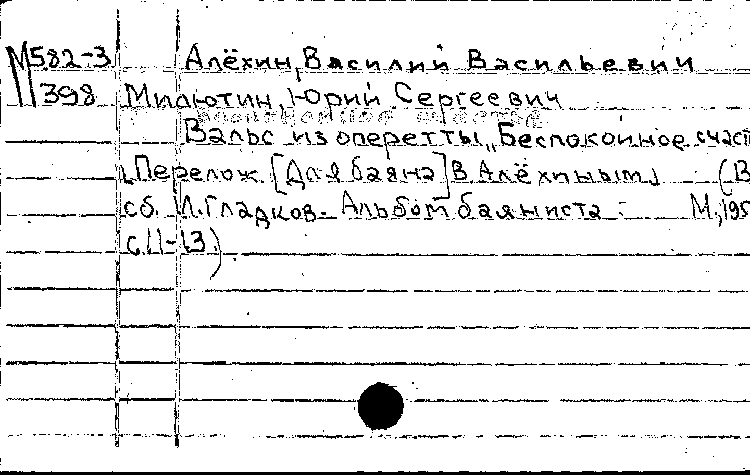 М582-3 Алёхин, Василий Васильевич
11398 Милютин, Юрий Сергеевич
Вальс из оперетты „Беспокойное счаст
[Перелож. [Для баяна] В Алёхиным] (В
сб. И. Гладков. Альбом баяниста. М., 195
с. 11-13)